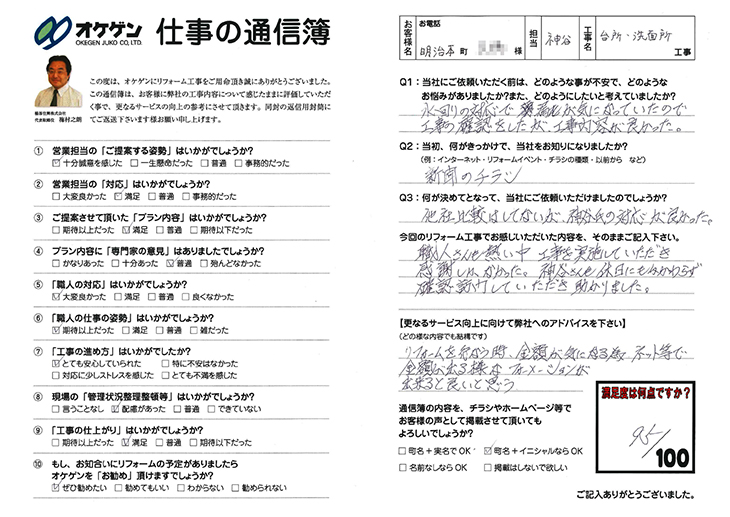 オケゲン
OKEGEN JUKO CO., LTD.
仕事の通信簿
この度は、オケゲンにリフォーム工事をご用命頂き誠にありがとうございました。
この通信簿は、お客様に弊社の工事内容について感じたままに評価していただ
く事で、更なるサービスの向上の参考にさせて頂きます。同封の返信用封筒にて
ご返送下さいます様お願い申し上げます。
桶庄住興株式会社
① 営業担当の「ご提案する姿勢」はいかがでしょうか?
☑十分誠意を感じた □一生懸命だった □普通 □事務的だった
② 営業担当の「対応」はいかがでしょうか?
□大変良かった ☑満足 □普通 □事務的だった
③ ご提案させて頂いた「プラン内容」はいかがでしょうか?
□期待以上だった ☑満足 □普通 □期待以下だった
④ プラン内容に「専門家の意見」はありましたでしょうか?
□かなりあった □十分あった ☑普通 □殆んどなかった
⑤ 「職人の対応」はいかがでしょうか?
☑大変良かった □満足 □普通 □良くなかった
⑥ 「職人の仕事の姿勢」はいかがでしょうか?
☑期待以上だった □満足 □普通 □雑だった
⑦ 「工事の進め方」はいかがでしたか?
☑とても安心していられた □特に不安はなかった
□対応に少しストレスを感じた □とても不満を感じた
⑧ 現場の「管理状況整理整頓等」はいかがでしょうか?
□言うことなし ☑配慮があった □普通 □できていない
⑨ 「工事の仕上がり」はいかがでしょうか?
□期待以上だった ☑満足 □普通 □期待以下だった
⑩ もし、お知合いにリフォームの予定がありましたら
オケゲンを「お勧め」頂けますでしょうか?
☑ぜひ勧めたい □勧めてもいい □わからない □勧められない
お客様名
お電話
明治本町 様
担当
神谷
工事名
台所・洗面所
工事
Q1:当社にご依頼いただく前は、どのような事が不安で、どのような
お悩みがありましたか?また、どのようにしたいと考えていましたか?
水回りの対応で 老化が気になっていたので
工事の確認をしたが、工事内容が良かった。
Q2:当初、何がきっかけで、当社をお知りになりましたか?
(例:インターネット・リフォームイベント・チラシの種類・以前から など)
新聞のチラシ
Q3:何が決めてとなって、当社にご依頼いただけましたのでしょうか?
他社比較はしてないが、神谷氏の対応が良かった。
今回のリフォーム工事でお感じいただいた内容を、そのままご記入下さい。
職人さんも熱い中 工事を実施していただき
感謝しかなかった。神谷さんも休日にもかかわらず
確認訪問していただき助かりました。
【更なるサービス向上に向けて弊社へのアドバイスを下さい】
(どの様な内容でも結構です)
リフォームを行なう時、金額が気になる為、ネット等で
金額が出る様な
出来ると良いと思う
通信簿の内容を、チラシやホームページ等で
お客様の声として掲載させて頂いても
よろしいでしょうか?
□町名+実名でOK ☑町名+イニシャルならOK
□名前なしならOK □掲載はしないで欲しい
満足度は何点ですか?
95/100
ご記入ありがとうございました。